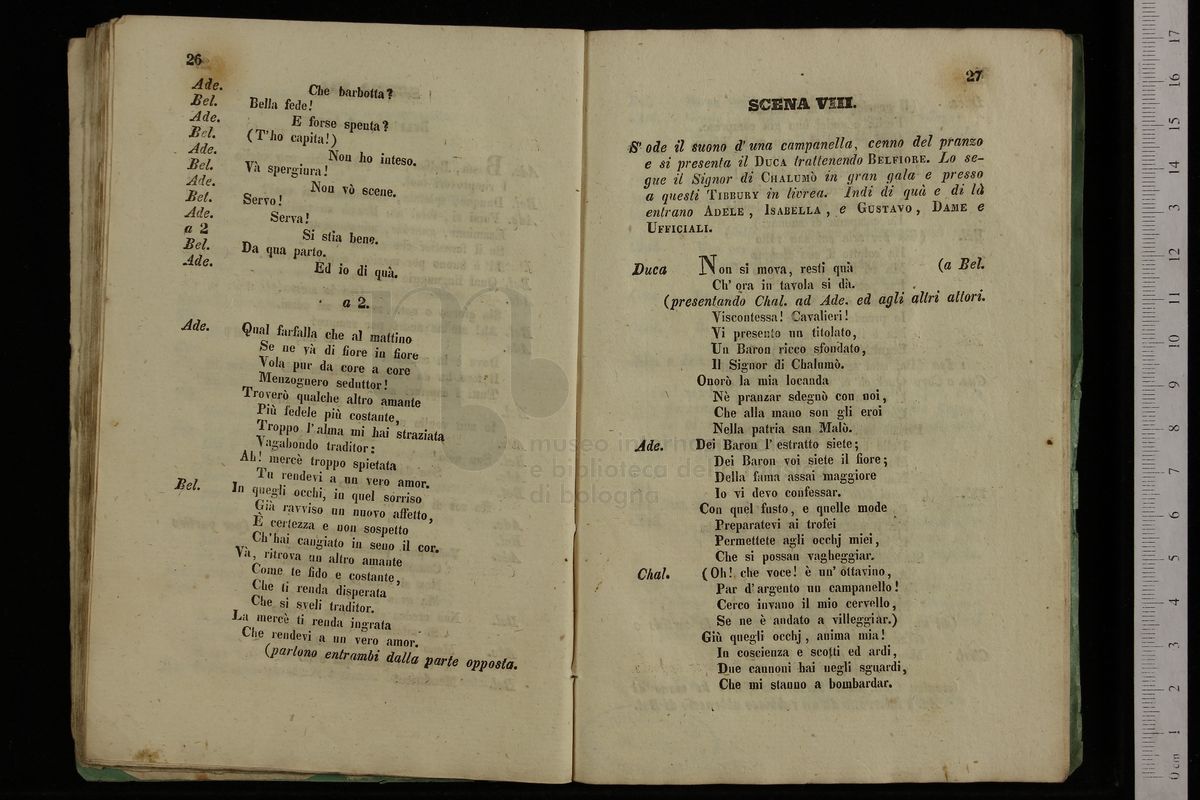 26
Ade. Che barbotta?
Bel. Bella fede!
Ade. E forse spenta?
Bel. (T'ho capita!)
Ade. Non ho inteso.
Bel. Và spergiura!
Ade. Non vò scene.
Bel. Servo!
Ade. Serva!
a 2 Si stia bene.
Bel. Da qua parto.
Ade. Ed io di quà.
a 2.
Ade. Qual farfalla che al mattino
Se ne và di fiore in fiore
Vola pur da core a core
Menzognero seduttor!
Troverò qualche altro amante
Più fedele più costante,
Troppo l'alma mi hai straziata
Vagabondo traditor:
Ah! mercè troppo spietata
Tu rendevi a un vero amor.
Bel. In quegli occhi, in quel sorriso
Già ravviso un nuovo affetto,
È certezza e non sospetto
Ch'hai cangiato in seno il cor.
Và, ritrova un altro amante
Come te fido e costante,
Che ti renda disperata
Che si sveli traditor.
La mercè ti renda ingrata
Che rendevi a un vero amor.
(partono entrambi dalla parte opposta.
27
SCENA VIII.
S'ode il suono d'una campanella, cenno del pranzo
e si presenta il DUCA trattenendo BELFIORE. Lo se-
gue il Signor di CHALUMÒ in gran gala e presso
a questi TIBBURY in livrea. Indi di quà e di là
entrano ADELE, ISABELLA, e GUSTAVO, DAME e
UFFICIALI.
Duca Non si mova, resti quà (a Bel.
Ch' ora in tavola si dà.
(presentando Chal. ad Ade. ed agli altri attori.
Viscontessa! Cavalieri!
Vi presento un titolato,
Un Baron ricco sfondato,
Il Signor di Chalumò.
Onorò la mia locanda
Nè pranzar sdegnò con noi,
Che alla mano son gli eroi
Nella patria san Malò.
Ade. Dei Baron l'estratto siete;
Dei Baron voi siete il fiore;
Della fama assai maggiore
Io vi devo confessar.
Con quel fusto, e quelle mode
Preparatevi ai trofei
Permettete agli occhj miei,
Che si possan vagheggiar.
Chal. (Oh! che voce! è un' ottavino,
Par d'argento un campanello!
Cerco invano il mio cervello,
Se ne è andato a villeggiar.)
Giù quegli occhj, anima mia!
In coscienza e scotti ed ardi,
Due cannoni hai negli sguardi,
Che mi stanno a bombardar.